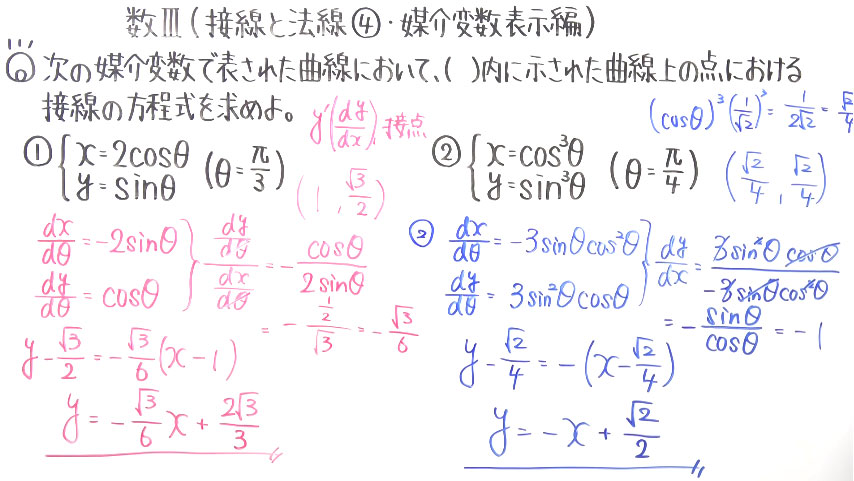 数Ⅲ(接線と法線④・媒介変数表示編)
次の媒介変数で表された曲線において、( )内に示された曲線上の点における
接線の方程式を求めよ。
y'(dy/dx), 接点
(cosθ)³(1/√2)³ = 1/2√2 = √2/4
① { x=2cosθ y=sinθ (θ=π/3)
(1, √3/2)
dx/dθ = -2sinθ
dy/dθ = cosθ
dy/dθ / dx/dθ = - cosθ/2sinθ
= - 1/2/√3 = - √3/6
y - √3/2 = - √3/6 (x-1)
y = - √3/6 x + 2√3/3
② { x=cos³θ y=sin³θ (θ=π/4)
(√2/4, √2/4)
② dx/dθ = -3sinθcos²θ
dy/dθ = 3sin²θcosθ
dy/dx = 3sin²θcosθ / -3sinθcos²θ
= - sinθ/cosθ = -1
y - √2/4 = -(x - √2/4)
y = -x + √2/2